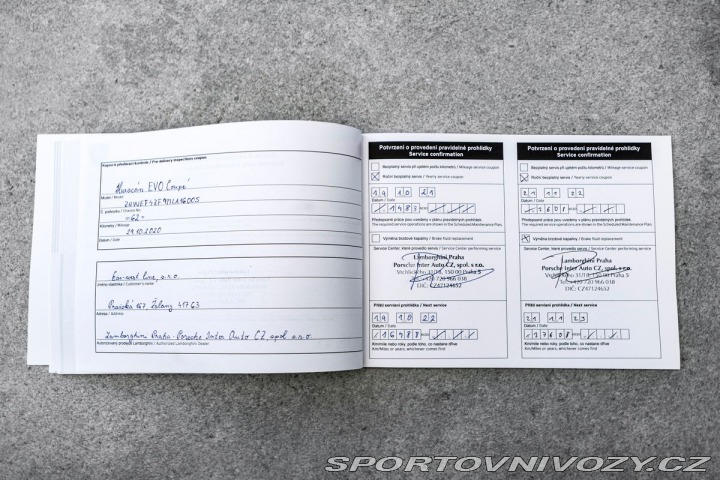 Kupon k předávací kontrole / Pre-delivery inspections coupon
Huracán EVO Coupé
Model / Model
Č. podvozku / Chassis No.
=62=
Kilometry / Mileage
29.10.2020
Datum / Date
Far-west line, s.r.o.
Jméno vlastníka / Customer's name
Pražská 167, Žalany 417 63
Adresa / Address
Lamborghini Praha - Porsche Inter Auto CZ, spol. s r.o.
Autorizovaný prodejce Lamborghini / Authorized Lamborghini Dealer
Potvrzení o provedení pravidelné prohlídky
Service confirmation
Bezplatný servis při ujetém počtu kilometrů / Mileage service coupon
Roční bezplatný servis / Yearly service coupon
19 10 21
Datum / Date
1483
Předepsané práce jsou uvedeny v plánu pravidelných prohlídek.
The service required operations are shown in the Scheduled Maintenance Plan.
Výměna brzdové kapaliny / Brake fluid replacement
Service Center, které provedlo servis / Service Center performing service
Lamborghini Praha
Porsche Inter Auto CZ, spol. s r.o.
Vrchlického 31/18, 150 00 Praha 5
DIČ: CZ47124652
Příští servisní prohlídka / Next service
19 10 22
Datum / Date
16488
Km/míle nebo roky, podle toho, co nastane dříve
Km/Miles or years, whichever comes first
Potvrzení o provedení pravidelné prohlídky
Service confirmation
Bezplatný servis při ujetém počtu kilometrů / Mileage service coupon
Roční bezplatný servis / Yearly service coupon
21 11 22
Datum / Date
2608
Předepsané práce jsou uvedeny v plánu pravidelných prohlídek.
The service required operations are shown in the Scheduled Maintenance Plan.
Výměna brzdové kapaliny / Brake fluid replacement
Service Center, které provedlo servis / Service Center performing service
Lamborghini Praha
Porsche Inter Auto CZ, spol. s r.o.
Vrchlického 31/18, 150 00 Praha 5
Tel.: +420 720 966 018
DIČ: CZ47124652
Příští servisní prohlídka / Next service
21 11 23
Datum / Date
17608
Km/míle nebo roky, podle toho, co nastane dříve
Km/Miles or years, whichever comes first
SPORTOVNIVOZY.CZ